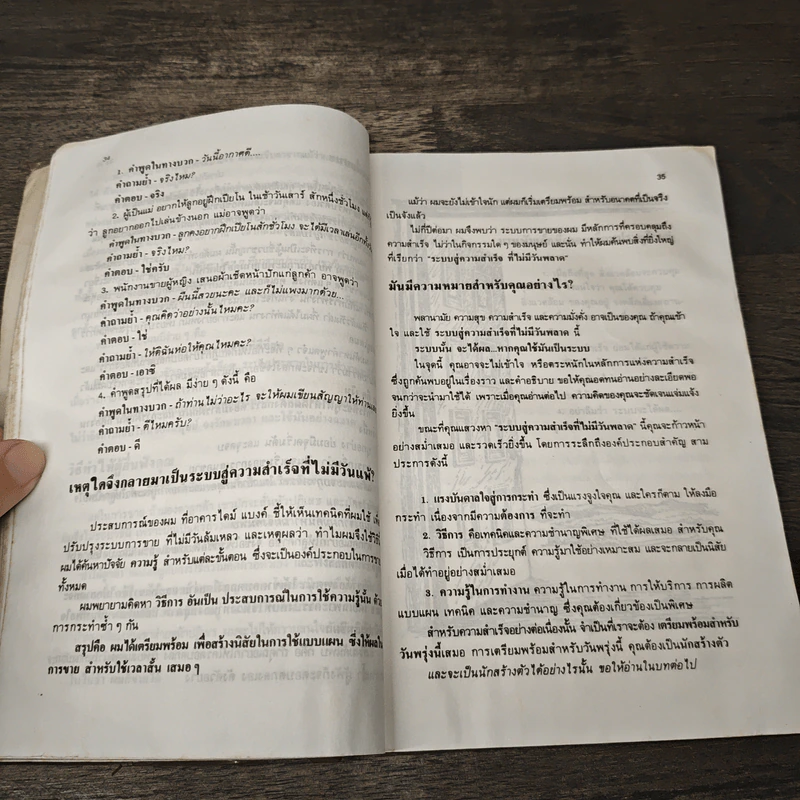 34
1. คำพูดในทางบวก - วันนี้อากาศดี....
คำถามย้ำ - จริงไหม?
คำตอบ - จริง
2. ผู้เป็นแม่ อยากให้ลูกอยู่ฝึกเปียโน ในเช้าวันเสาร์ สักหนึ่งชั่วโมง
ว่า ลูกอยากออกไปเล่นข้างนอก แม่อาจพูดว่า
คำพูดในทางบวก - ลูกคงอยากฝึกเปียโนสักชั่วโมง จะได้มีเวลาเล่นอีก
คำถามย้ำ - จริงไหม?
คำตอบ - ใช่ครับ
3. พนักงานขายผู้หญิง เสนอผ้าเช็ดหน้าปักแก่ลูกค้า อาจพูดว่า
คำพูดในทางบวก - ผืนนี้สวยนะคะ และก็ไม่แพงมากด้วย...
คำถามย้ำ - คุณคิดว่าอย่างนั้นไหมคะ?
คำตอบ - ใช่
คำถามย้ำ - ให้ดิฉันห่อให้คุณไหมคะ?
คำตอบ - เอาซิ
4. คำพูดสรุปที่ได้ผล มีง่าย ๆ ดังนี้ คือ
คำพูดในทางบวก - ถ้าท่านไม่ว่าอะไร จะให้ผมเขียนสัญญาให้ท่าน
คำถามย้ำ - ดีไหมครับ?
คำตอบ - ดี
เหตุใดจึงกลายมาเป็นระบบสู่ความสำเร็จที่ไม่มีวันแพ้?
ประสบการณ์ของผม ที่อาคารไดม์ แบงค์ ชี้ให้เห็นเทคนิคที่ผมใช้
ปรับปรุงระบบการขาย ที่ไม่มีวันล้มเหลว และเหตุผลว่า ทำไมผมจึงใช้
ผมได้ค้นหาปัจจัย ความรู้ สำหรับแต่ละขั้นตอน ซึ่งจะเป็นองค์ประกอบในการ
ทั้งหมด
ผมพยายามคิดหา วิธีการ อันเป็น ประสบการณ์ในการใช้ความรู้นั้น
การกระทำซ้ำ ๆ กัน
สรุปคือ ผมได้เตรียมพร้อม เพื่อสร้างนิสัยในการใช้แบบแผน ซึ่งให้ผล
การขาย สำหรับใช้เวลาสั้น เสมอ ๆ
35
แม้ว่า ผมจะยังไม่เข้าใจนัก แต่ผมก็เริ่มเตรียมพร้อม สำหรับอนาคตที่เป็นจริง
เป็นจังแล้ว
ไม่กี่ปีต่อมา ผมจึงพบว่า ระบบการขายของผม มีหลักการที่ครอบคลุมถึง
ความสำเร็จ ไม่ว่าในกิจกรรมใด ๆ ของมนุษย์ และนั่น ทำให้ผมค้นพบสิ่งที่ยิ่งใหญ่
ที่เรียกว่า "ระบบสู่ความสำเร็จ ที่ไม่มีวันพลาด"
มันมีความหมายสำหรับคุณอย่างไร?
พลานามัย ความสุข ความสำเร็จ และความมั่งคั่ง อาจเป็นของคุณ ถ้าคุณเข้า
ใจ และใช้ ระบบสู่ความสำเร็จที่ไม่มีวันพลาด นี้
ระบบนั้น จะได้ผล...หากคุณใช้มันเป็นระบบ
ในจุดนี้ คุณอาจจะไม่เข้าใจ หรือตระหนักในหลักการแห่งความสำเร็จ
ซึ่งถูกค้นพบอยู่ในเรื่องราว และคำอธิบาย ขอให้คุณอดทนอ่านอย่างละเอียดพอ
จนกว่าจะนำมาใช้ได้ เพราะเมื่อคุณอ่านต่อไป ความคิดของคุณจะชัดเจนแจ่มแจ้ง
ยิ่งขึ้น
ขณะที่คุณแสวงหา "ระบบสู่ความสำเร็จที่ไม่มีวันพลาด" นี้คุณจะก้าวหน้า
อย่างสม่ำเสมอ และรวดเร็วยิ่งขึ้น โดยการระลึกถึงองค์ประกอบสำคัญ สาม
ประการดังนี้
1. แรงบันดาลใจสู่การกระทำ ซึ่งเป็นแรงจูงใจคุณ และใครก็ตาม ให้ลงมือ
กระทำ เนื่องจากมีความต้องการ ที่จะทำ
2. วิธีการ คือเทคนิคและความชำนาญพิเศษ ที่ใช้ได้ผลเสมอ สำหรับคุณ
วิธีการ เป็นการประยุกต์ ความรู้มาใช้อย่างเหมาะสม และจะกลายเป็นนิสัย
เมื่อได้ทำอยู่อย่างสม่ำเสมอ
3. ความรู้ในการทำงาน ความรู้ในการทำงาน การให้บริการ การผลิต
แบบแผน เทคนิค และความชำนาญ ซึ่งคุณต้องเกี่ยวข้องเป็นพิเศษ
สำหรับความสำเร็จอย่างต่อเนื่องนั้น จำเป็นที่เราจะต้อง เตรียมพร้อมสำหรับ
วันพรุ่งนี้เสมอ การเตรียมพร้อมสำหรับวันพรุ่งนี้ คุณต้องเป็นนักสร้างตัว
และจะเป็นนักสร้างตัวได้อย่างไรนั้น ขอให้อ่านในบทต่อไป